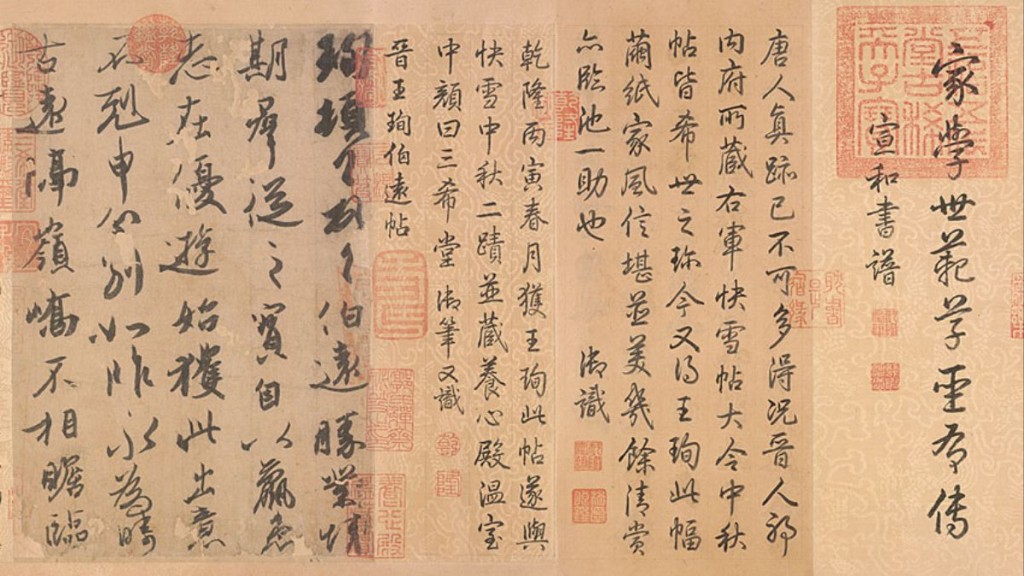 五福五代堂古稀天子寶
家學世範草聖有傳
宣和書譜
唐人真跡已不可多得況晉人耶
内府所藏右軍快雪帖大令中秋
帖皆希世之珍今又得王珣此幅
繭紙家風信堪並美幾餘清賞
亦臨池一助也 御識
乾隆丙寅春月獲王珣此帖遂與
快雪中秋二蹟並藏養心殿溫室
中顏曰三希堂 御筆又識
晉王珣伯遠帖
珣頓首頓首伯遠勝業情
期群從之寶自以羸患
志在優遊始獲此出意
不剋申分別如昨永為疇
古遠隔嶺嶠不相瞻臨